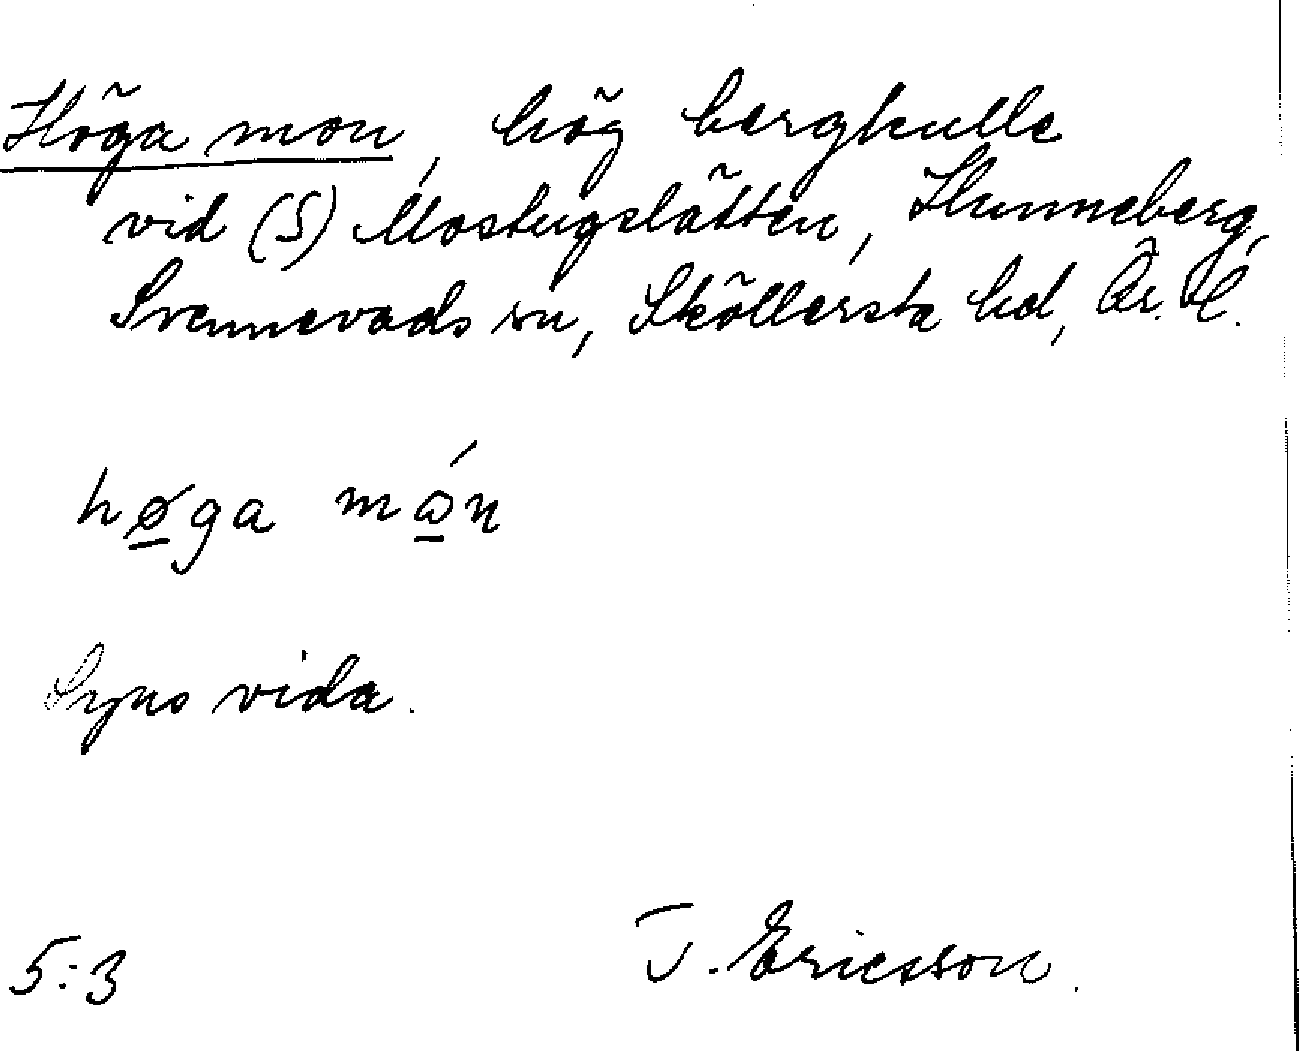 Höga mon, hög bergkulle
vid (S) Mostugslätten, Hunneberg,
Svennevads sn, Sköllersta hd, Ör. l.
høga món
Syns vida.
5:3 T. Ericsson.